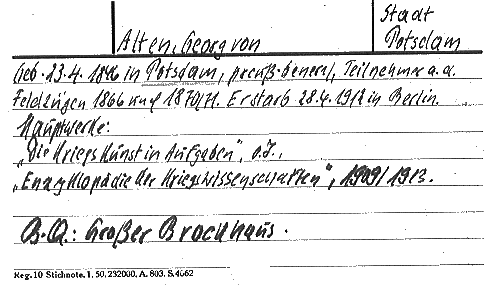 Alten, Georg von
Stadt
Potsdam
Geb. 23.4.1846 in Potsdam, preuß. General, Teilnehmer a.d.
Feldzügen 1866 und 1870/71. Er starb 28.4.1912 in Berlin.
Hauptwerke:
„Die Kriegskunst in Aufgaben", o.J.,
„Enzyklopädie der Kriegswissenschaften", 1909/1913.
B.Q.: Großer Brockhaus.
Reg. 10 Stichnote. I. 50. 232000. A. 803. S. 4662